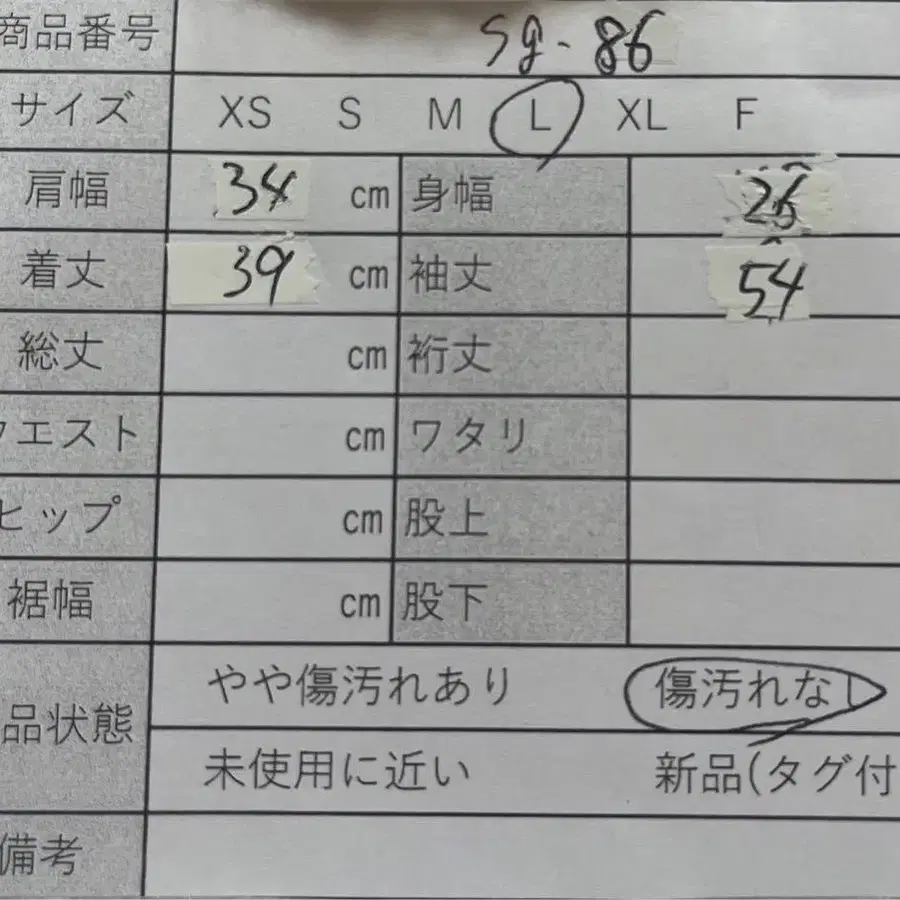 商品番号 sg-86
サイズ XS S M L XL F
肩幅 34 cm 身幅 26
着丈 39 cm 袖丈 54
総丈 cm 裄丈
ウエスト cm ワタリ
ヒップ cm 股上
裾幅 cm 股下
品状態 やや傷汚れあり 傷汚れなし
未使用に近い 新品(タグ付
備考